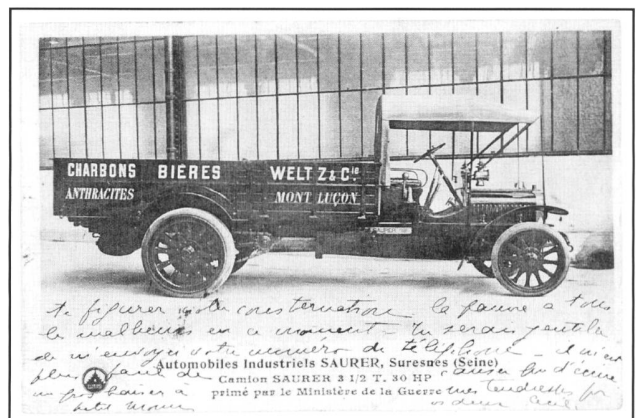 CHARBONS BIÈRES WELTZ & Cie
ANTHRACITES MONT LUÇON
SAURER
te figurer notre consternation la pauvre a tous
les malheurs en ce moment. Tu serais gentille
de m'envoyer votre numéro de téléphone
Automobiles Industriels SAURER, Suresnes (Seine)
Camion SAURER 3 1/2 T. 30 HP
primé par le Ministère de la Guerre